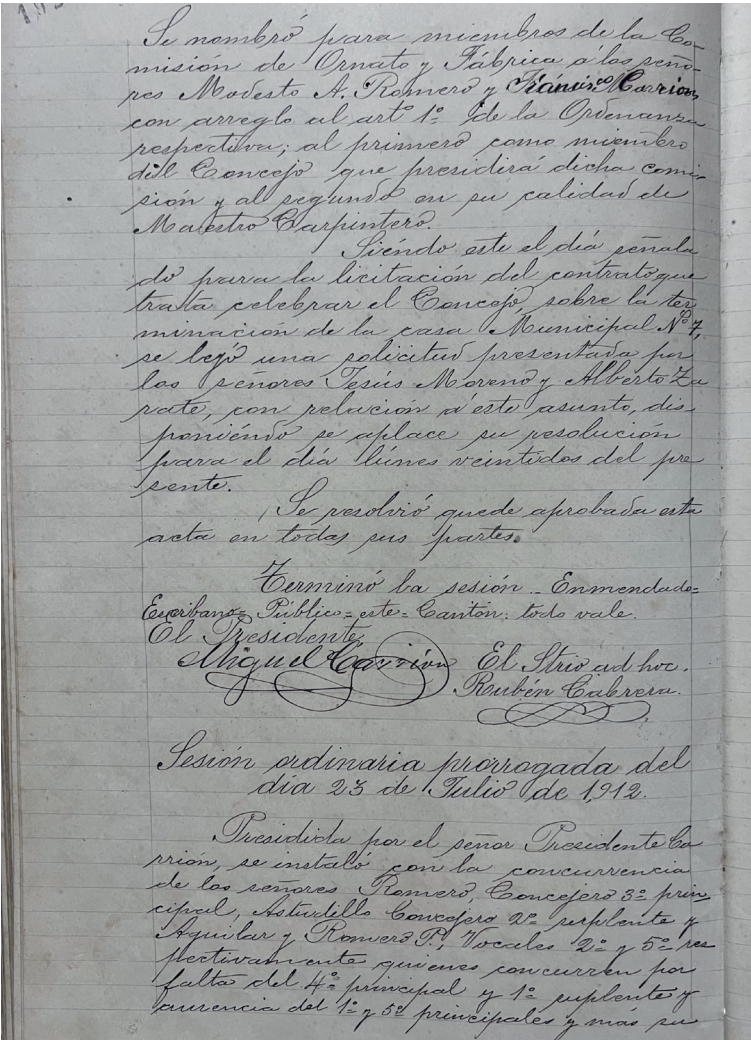 Se nombró para miembros de la Co-
misión de Ornato y Fábrica á los seño-
res Modesto A. Romero y Francisco Carrión,
con arreglo al artº 1º de la Ordenanza
respectiva; al primero como miembro
del Concejo que presidirá dicha comi-
sión y al segundo en su calidad de
Maestro Carpintero.
Siéndo este el día señala
do para la licitación del contrato que
trata celebrar el Concejo sobre la ter
minación de la casa Municipal Nº 7,
se leyó una solicitud presentada por
los señores Jesús Moreno y Alberto Za
rate, con relación á este asunto, dis
poniéndo se aplace su resolución
para el día lúnes veintidos del pre
sente.
Se resolvió quede aprobada esta
acta en todas sus partes.
Terminó la sesión _ Enmendado=
Escribano= Público= este= Cantón: todo vale.
El Presidente
Miguel Carrión El Strio ad hoc.
Rubén Cabrera.
Sesión ordinaria prorrogada del
día 23 de Julio de 1,912.
Presidida por el señor Presidente Ca
rrión, se instaló con la concurrencia
de los señores Romero, Concejero 3º prin
cipal, Astudillo Concejero 2º suplente y
Aguilar y Romero P., Vocales 2º y 5º res
pectivamente quienes concurren por
falta del 4º principal y 1º suplente y
ausencia del 1º y 5º principales y más su